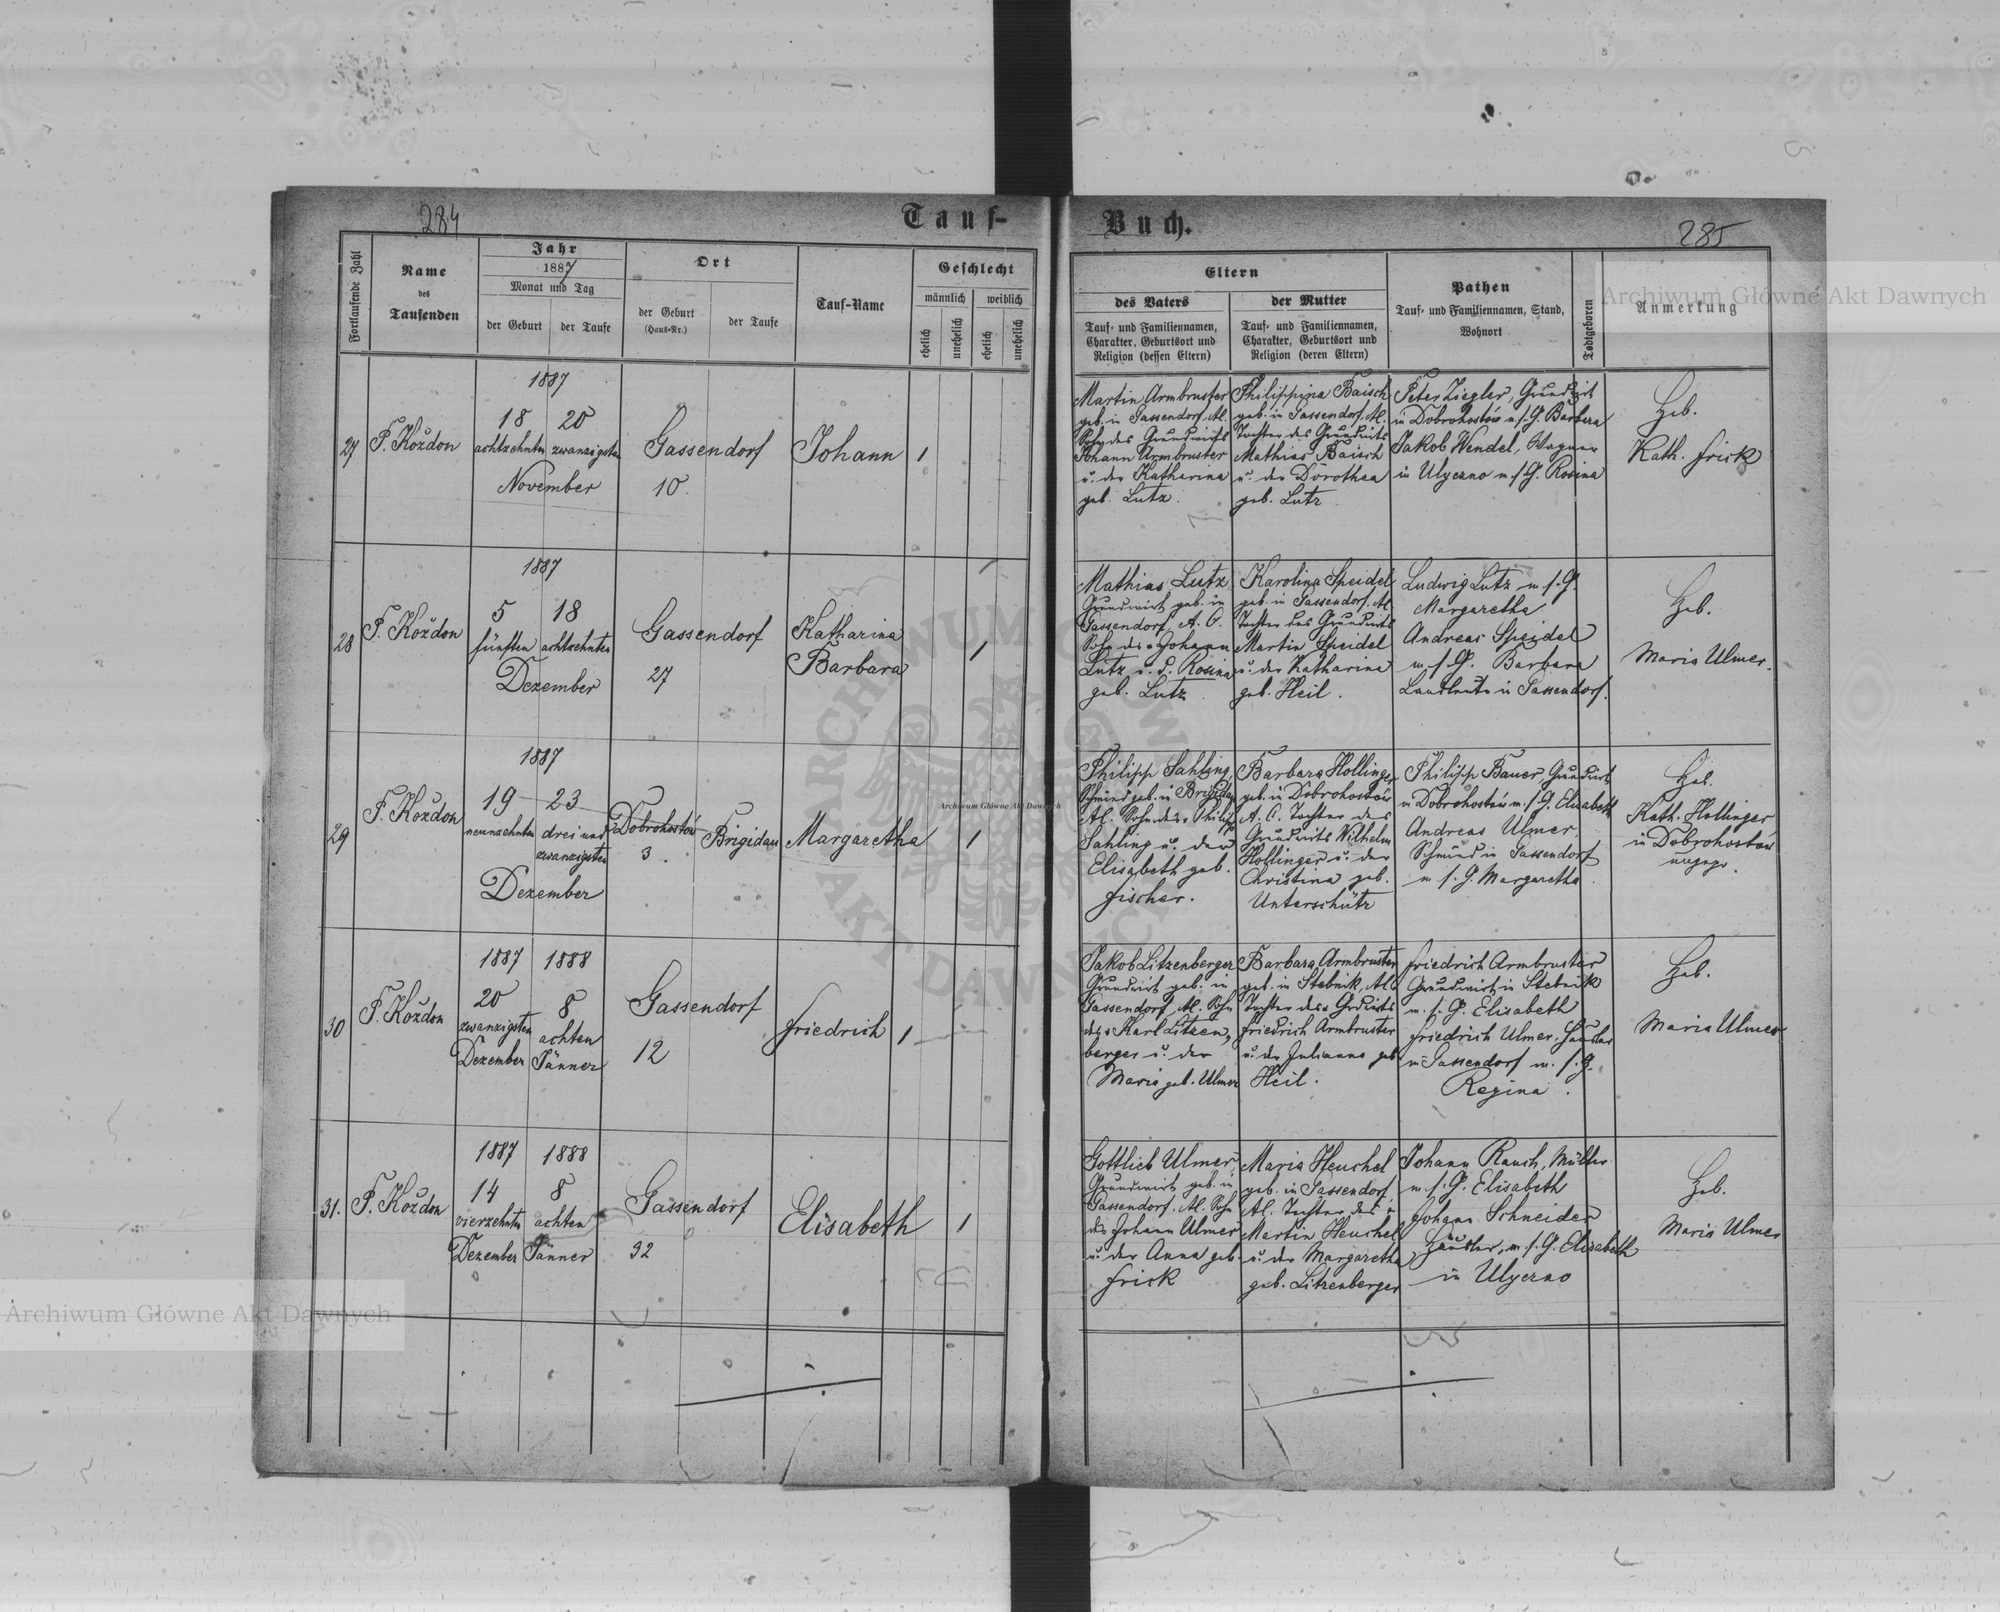 284
Tauf-
Buch.
285
Fortlaufende Zahl
Name
des
Taufenden
Jahr
1887
Monat und Tag
der Geburt
der Taufe
Ort
der Geburt
(Haus-Nr.)
der Taufe
Tauf-Name
Geschlecht
männlich
weiblich
ehelich
unehelich
ehelich
unehelich
Eltern
des Vaters
Tauf- und Familiennamen,
Charakter, Geburtsort und
Religion (dessen Eltern)
der Mutter
Tauf- und Familiennamen,
Charakter, Geburtsort und
Religion (deren Eltern)
Pathen
Tauf- und Familiennamen, Stand,
Wohnort
Todtgeboren
Anmerkung
27
F. Koždon
1887
18
achtzehnten
20
zwanzigsten
November
Gassendorf
10.
Johann
1
Martin Armbruster
geb. in Gassendorf, A.C.
Sohn des Grundwirts
Johann Armbruster
u. der Katharina
geb. Lutz.
Philippina Baisch
geb. in Gassendorf, A.C.
Tochter des Grundwirts
Mathias Baisch
u. der Dorothea
geb. Lutz
Peter Ziegler, Grundwirt
in Dobrohostów m. s. G. Barbara
Jakob Wendel, Wagner
in Ulyczno m. s. G. Rosina
Heb.
Kath. Frick
28
F. Koždon
1887
5
fünften
18
achtzehnten
Dezember
Gassendorf
27
Katharina
Barbara
1
Mathias Lutz
Grundwirt geb. in
Gassendorf, A. C.
Sohn des Johann
Lutz u. d. Rosina
geb. Lutz
Karolina Speidel
geb. in Gassendorf, A.C.
Tochter des Grundwirts
Martin Speidel
u. der Katharina
geb. Heil.
Ludwig Lutz m. s. G.
Margaretha
Andreas Speidel
m. s. G. Barbara
Landleute in Gassendorf.
Heb.
Maria Ulmer.
29
F. Koždon
1887
19
neunzehnten
23
drei und
zwanzigsten
Dezember
Dobrohostów
3.
Brigidau
Margaretha
1
Philipp Sahling
Schmied geb. in Brigidau
A.C. Sohn des Philipp
Sahling u. der
Elisabeth geb.
Fischer.
Barbara Hollinger
geb. in Dobrohostów
A. C. Tochter des
Grundwirts Wilhelm
Hollinger u. der
Christina geb.
Unterschütz
Philipp Bauer Grundwirt
in Dobrohostów m. s. G. Elisabeth
Andreas Ulmer
Schmied in Gassendorf
m. s. G. Margaretha.
Heb.
Kath. Hollinger
in Dobrohostów
ungepr.
30
F. Koždon
1887
20
zwanzigsten
Dezember
1888
8
achten
Jänner
Gassendorf
12
Friedrich
1
Jakob Litzenberger
Grundwirt geb. in
Gassendorf, A.C. Sohn
des Karl Litzen-
berger u. der
Maria geb. Ulmer
Barbara Armbruster
geb. in Stebnik, A.C.
Tochter des Grdwirts
Friedrich Armbruster
u. der Julianna geb.
Heil.
Friedrich Armbruster
Grundwirt in Stebnik
m. s. G. Elisabeth
Friedrich Ulmer, Häusler
in Gassendorf m. s. G.
Regina.
Heb.
Maria Ulmer
31.
F. Koždon
1887
14
vierzehnten
Dezember
1888
8
achten
Jänner
Gassendorf
32
Elisabeth
1
Gottlieb Ulmer,
Grundwirt geb. in
Gassendorf, A.C. Sohn
des Johann Ulmer
u. der Anna geb.
Frick
Maria Heuchel
geb. in Gassendorf,
A.C. Tochter des
Martin Heuchel
u. der Margaretha
geb. Litzenberger
Johann Rauch, Müller
m. s. G. Elisabeth
Johann Schneider
Häusler, m. s. G. Elisabeth
in Ulyczno
Heb.
Maria Ulmer
Archiwum Główne Akt Dawnych
Archiwum Główne Akt Dawnych
Archiwum Główne Akt Dawnych
ARCHIWUM
AKT DAWNYCH